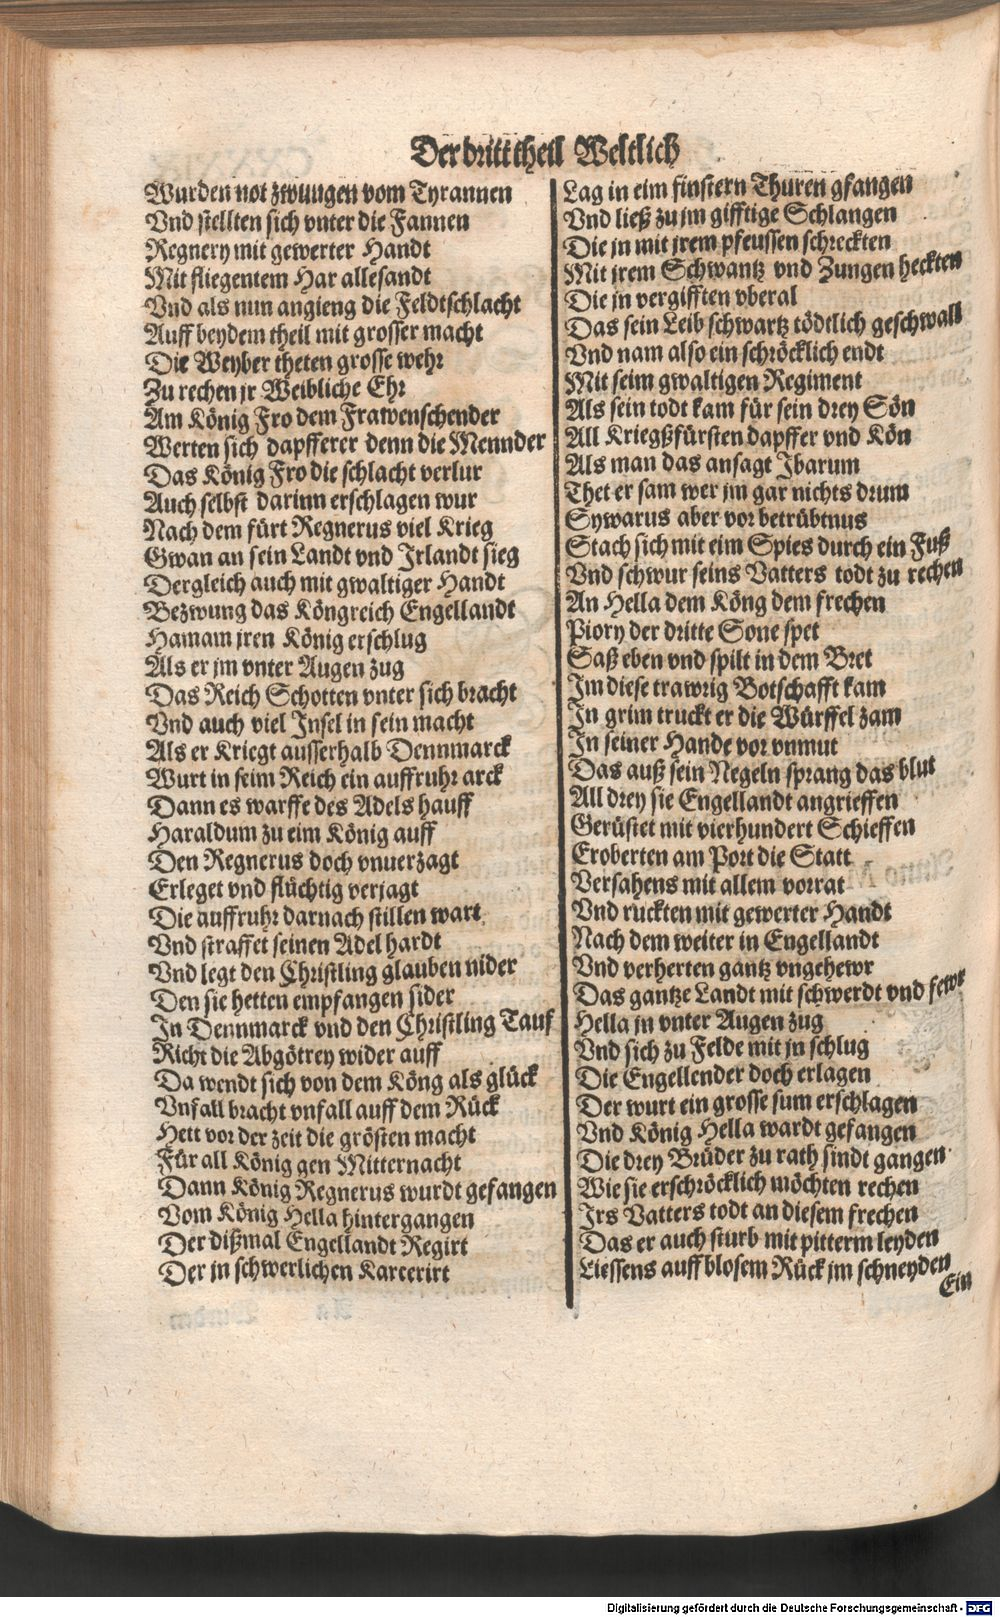 Der dritt theil Weltlich
Wurden not zwungen vom Tyrannen
Vnd stellten sich vnter die Fannen
Regnery mit gewerter Handt
Mit fliegentem Har allesandt
Vnd als nun angieng die Feldtschlacht
Auff beydem theil mit grosser macht
Die Weyber theten grosse wehr
Zu rechen jr Weibliche Ehr
Am König Fro dem Frawenschender
Werten sich dapfferer denn die Mennder
Das König Fro die schlacht verlur
Auch selbst darinn erschlagen wur
Nach dem fürt Regnerus viel Krieg
Gwan an sein Landt vnd Irlandt sieg
Dergleich auch mit gwaltiger Handt
Bezwung das Köngreich Engellandt
Hamam jren König erschlug
Als er jm vnter Augen zug
Das Reich Schotten vnter sich bracht
Vnd auch viel Insel in sein macht
Als er Kriegt ausserhalb Dennmarck
Wurt in seim Reich ein auffruhr arck
Dann es warffe des Adels hauff
Haraldum zu eim König auff
Den Regnerus doch vnuerzagt
Erleget vnd flüchtig verjagt
Die auffruhr darnach stillen wart
Vnd straffet seinen Adel hardt
Vnd legt den Christling glauben nider
Den sie hetten empfangen sider
In Dennmarck vnd den Christling Tauf
Richt die Abgötrey wider auff
Da wendt sich von dem Köng als glück
Vnfall bracht vnfall auff dem Rück
Hett vor der zeit die grösten macht
Für all König gen Mitternacht
Dann König Regnerus wurdt gefangen
Vom König Hella hintergangen
Der dißmal Engellandt Regirt
Der jn schwerlichen Karcerirt
Lag in eim finstern Thuren gfangen
Vnd ließ zu jm gifftige Schlangen
Die jn mit jrem pfeussen schreckten
Mit jrem Schwantz vnd Zungen heckten
Die jn vergifften vberal
Das sein Leib schwartz tödtlich geschwall
Vnd nam also ein schröcklich endt
Mit seim gwaltigen Regiment
Als sein todt kam für sein drey Sön
All Kriegßfürsten dapffer vnd Kön
Als man das ansagt Ibarum
Thet er sam wer jm gar nichts drum
Sywarus aber vor betrübtnus
Stach sich mit eim Spies durch ein Fuß
Vnd schwur seins Vatters todt zu rechen
An Hella dem Köng dem frechen
Piory der dritte Sone spet
Saß eben vnd spilt in dem Bret
Im diese trawrig Botschafft kam
In grim truckt er die Würffel zam
In seiner Hande vor vnmut
Das auß sein Negeln sprang das blut
All drey sie Engellandt angrieffen
Gerüstet mit vierhundert Schieffen
Eroberten am Port die Statt
Versahens mit allem vorrat
Vnd ruckten mit gewerter Handt
Nach dem weiter in Engellandt
Vnd verherten gantz vngehewr
Das gantze Landt mit schwerdt vnd fewr
Hella jn vnter Augen zug
Vnd sich zu Felde mit jn schlug
Die Engellender doch erlagen
Der wurt ein grosse sum erschlagen
Vnd König Hella wardt gefangen
Die drey Brüder zu rath sindt gangen
Wie sie erschröcklich möchten rechen
Irs Vatters todt an diesem frechen
Das er auch sturb mit pitterm leyden
Liessens auff blosem Rück jm schneyden
Ein
Digitalisierung gefördert durch die Deutsche Forschungsgemeinschaft - DFG